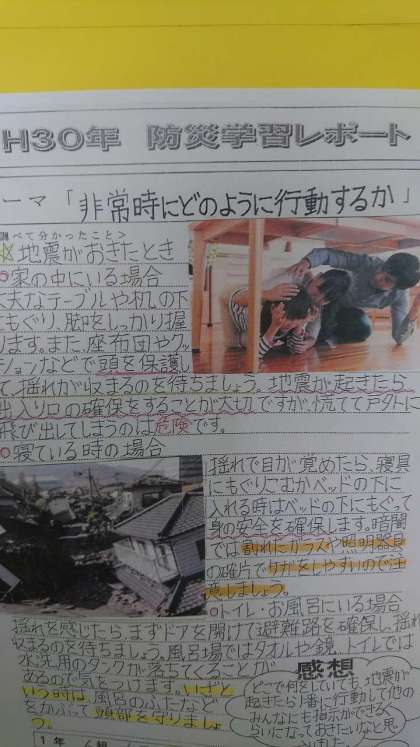 H30年 防災学習レポート
ーマ「非常時にどのように行動するか」
調べて分かったこと>
※地震がおきたとき
○家の中にいる場合
丈夫なテーブルや机の下
にもぐり、脚をしっかり握
ります。また、座布団やクッ
ションなどで頭を保護し
て、揺れが収まるのを待ちましょう。地震が起きたら、
出入り口の確保をすることが大切ですが、慌てて戸外に
飛び出してしまうのは危険です。
○寝ている時の場合
揺れで目が覚めたら、寝具
にもぐりこむかベッドの下に
入れる時はベッドの下にもぐって
身の安全を確保します。暗闇
では割れたガラスや照明器具
の破片でけがをしやすいので注
意しましょう。
○トイレ・お風呂にいる場合
揺れを感じたら、まずドアを開けて避難路を確保し、揺れ
収まるのを待ちましょう。風呂場ではタオルや鏡、トイレでは
水洗用のタンクが落ちてくることが
あるので気をつけます。いざと
いう時は、風呂のふたなど
をかぶって頭部を守りましょ
う。
感想
どこで何をしていても、地震が
起きたら1番に行動して他の
みんなにも指示ができるく
らいになっておきたいなと思
1年 組